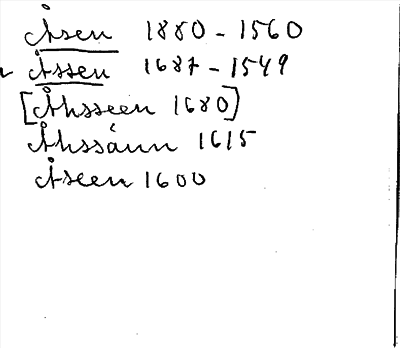 Åsen 1880 - 1560
v Åssen 1687 - 1549
[Åhsseen 1680]
Åhssánn 1615
Åseen 1600